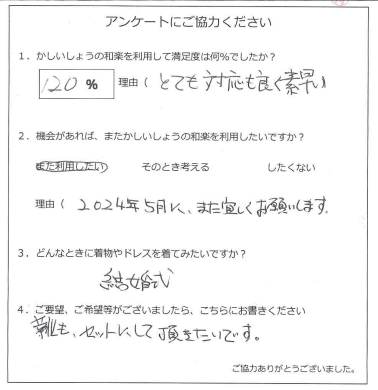 アンケートにご協力ください
1．かしいしょうの和楽を利用して満足度は何%でしたか？
120 % 理由（ とても対応も良く素早い
2．機会があれば、またかしいしょうの和楽を利用したいですか？
また利用したい そのとき考える したくない
理由（ 2024年5月に、また宜しくお願いします。
3．どんなときに着物やドレスを着てみたいですか？
結婚式
4．ご要望、ご希望等がございましたら、こちらにお書きください
靴も、セットにして頂きたいです。
ご協力ありがとうございました。